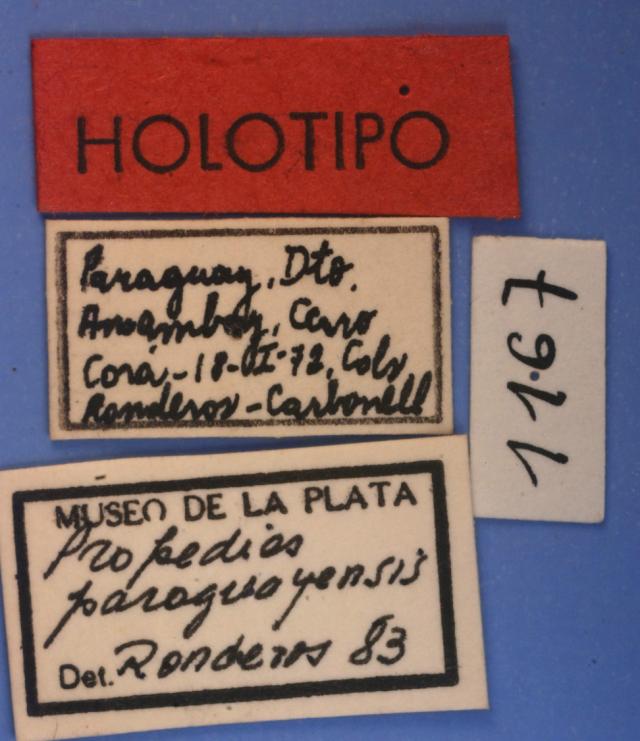 HOLOTIPO
Paraguay, Dto.
Amambay, Cerro
Corá-18-VI-72, Cols
Ronderos-Carbonell
1167
MUSEO DE LA PLATA
Propedies
paraguayensis
Det. Ronderos 83